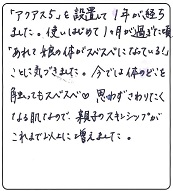 「アクアス5」を設置して1年が経ち
ました。使いはじめて1ヶ月が過ぎた頃
「あれ?娘の体がスベスベになっている!」
ことに気づきました。今では体のどこを
触ってもスベスベ♡ 思わずさわりたく
なる肌なので、親子のスキンシップが
これまで以上に増えました。